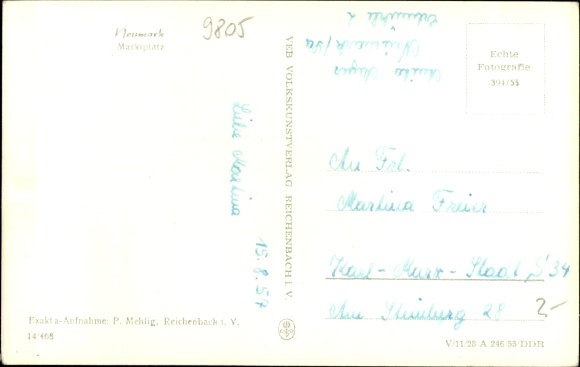 Neumark
Marktplatz
9805
Liebe Martina
15.8.57
VEB VOLKSKUNSTVERLAG REICHENBACH I. V.
Neumark / Sa
Echte
Fotografie
394/55
An Frl.
Martina Freier
Karl-Marx-Stadt S 34
Am Steinburg 28
2-
Exakta-Aufnahme: P. Mehlig, Reichenbach i. V.
14 468
V/11/28 A 246/55/DDR